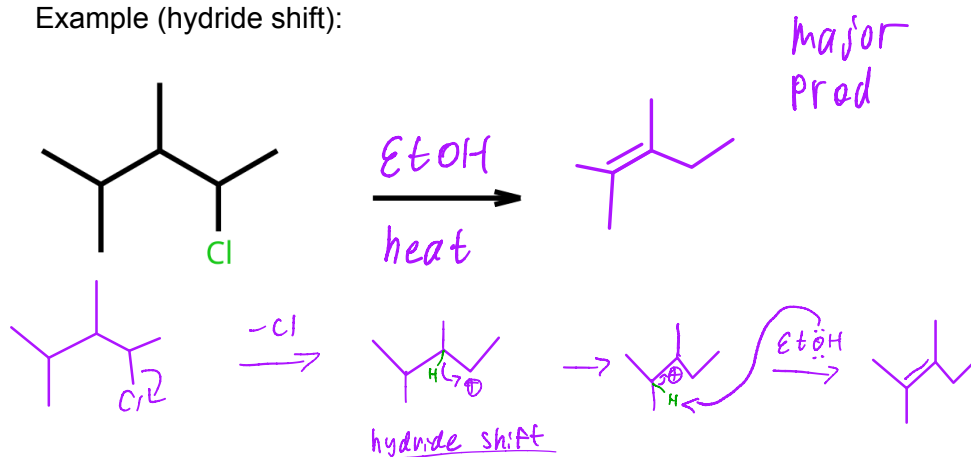 Example (hydride shift):
major
prod
EtOH
heat
Cl
-Cl
Cl
H
⊕
hydride shift
⊕
H
EtÖH